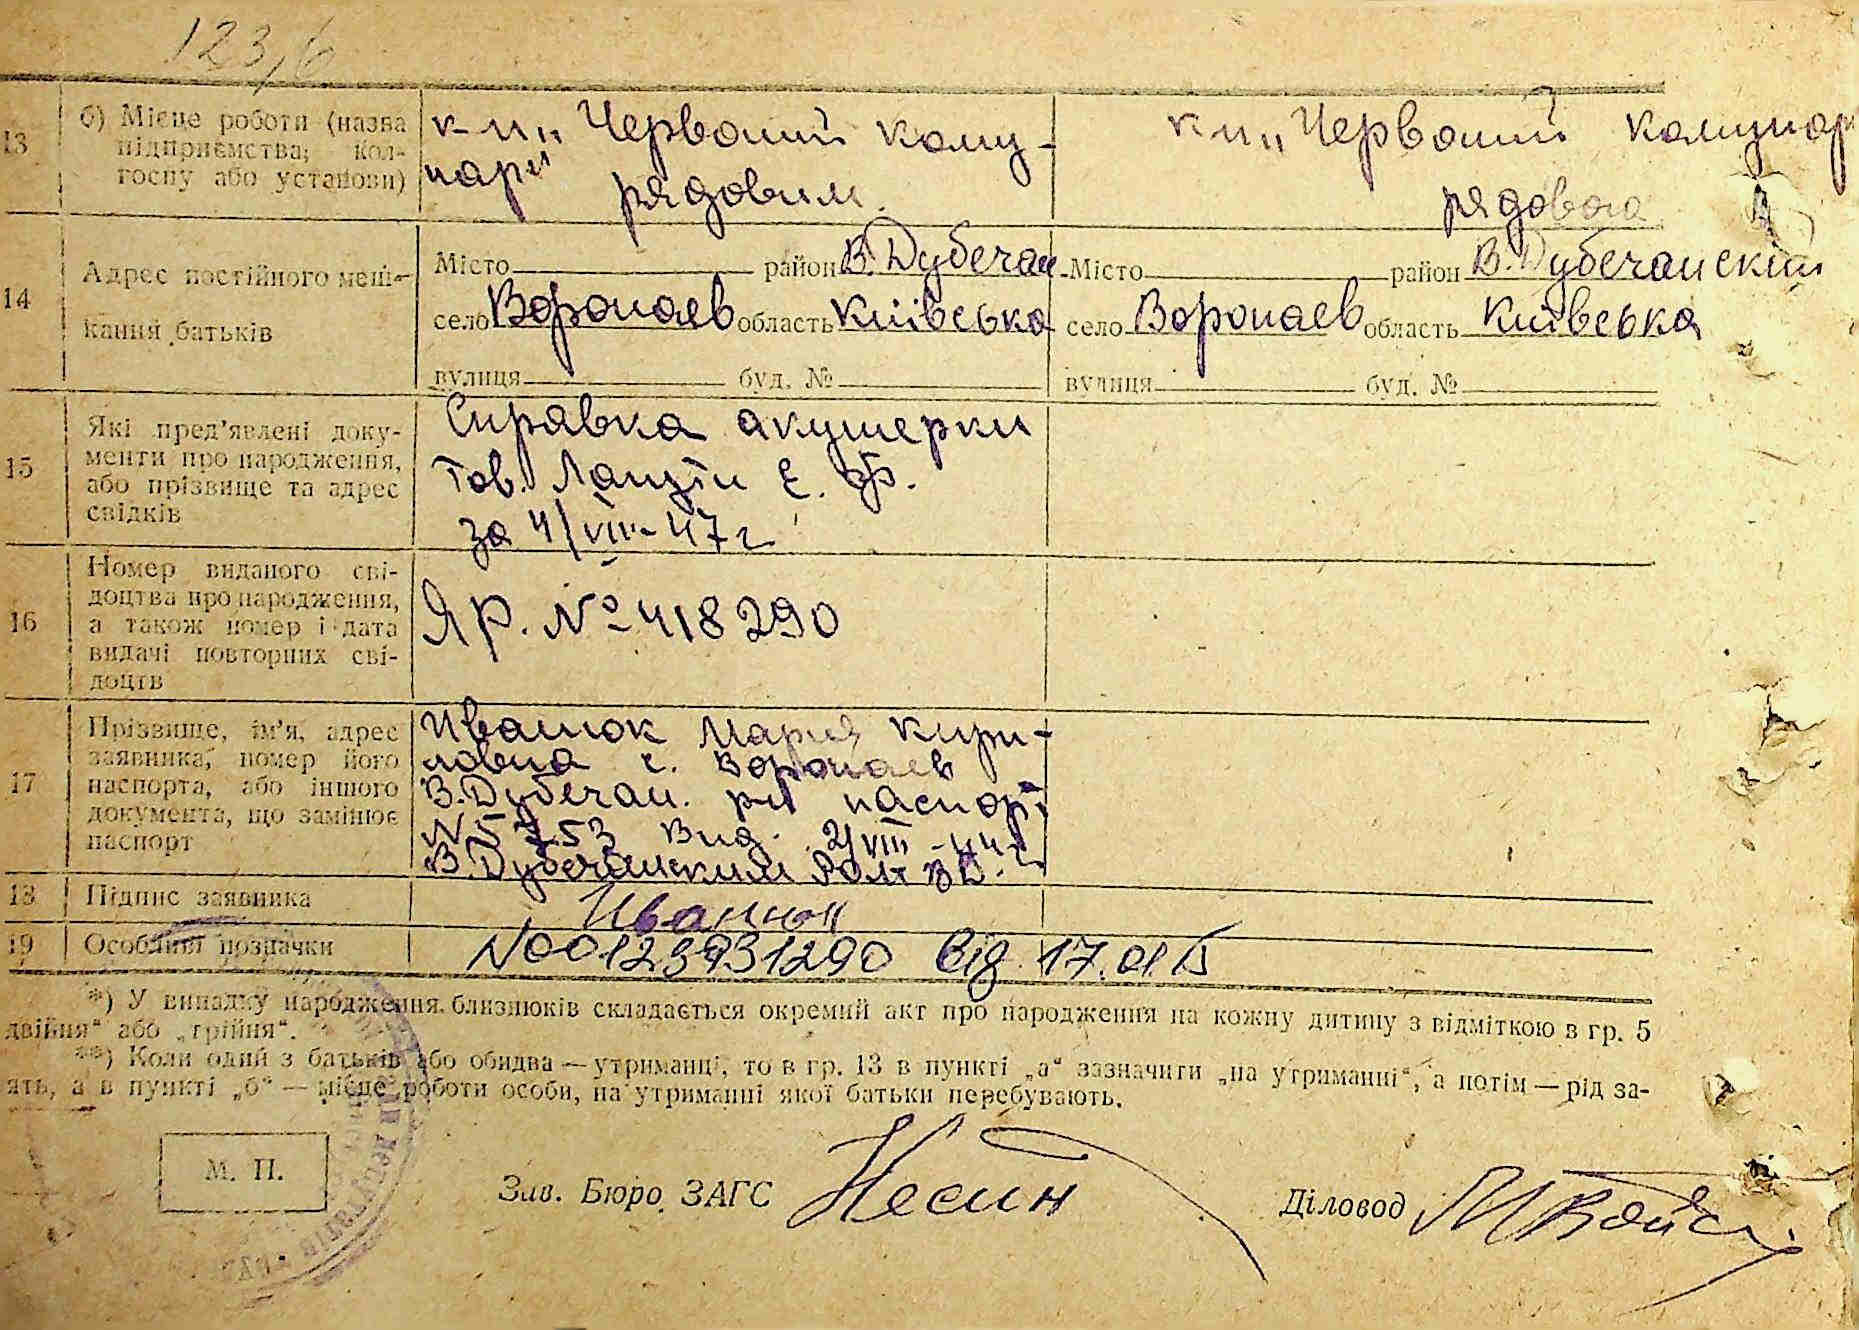 123,6
13 б) Місце роботи (назва підприємства; колгоспу або установи)
к-п „Червоний кому-
нар" рядовим.
к-п „Червоний комунар
рядовою
14 Адрес постійного меш-
кання батьків
Місто район В. Дубечан
село Воропаев область Київська
вулиця буд. №
Місто район В. Дубечанский
село Воропаев область Київська
вулиця буд. №
15 Які пред'явлені доку-
менти про народження,
або прізвище та адрес
свідків
Справка акушерки
тов. Е. Ф.
за 4/VIII-47 г
16 Номер виданого сві-
доцтва про народження,
а також номер і дата
видачі повторних сві-
доцтв
ЯР. № 418290
17 Прізвище, ім'я, адрес
заявника, номер його
паспорта, або іншого
документа, що замінює
паспорт
Ивашок Мария Кири-
ловна с. Воропаев
В. Дубечан. р-н паспорт
N 5753 Вид. 2/VIII-44 г.
В. Дубечанским
18 Підпис заявника
Ивашок
19 Особливі позначки
N00123931290 від 17.01.15
*) У випадку народження близнюків складається окремий акт про народження на кожну дитину з відміткою в гр. 5
двійня" або „трійня".
**) Коли один з батьків або обидва — утриманці, то в гр. 13 в пункті „а" зазначити „на утриманні", а потім — рід за-
ять, а в пункті „б" — місце роботи особи, на утриманні якої батьки перебувають.
М. П.
Зав. Бюро ЗАГС Несин
Діловод